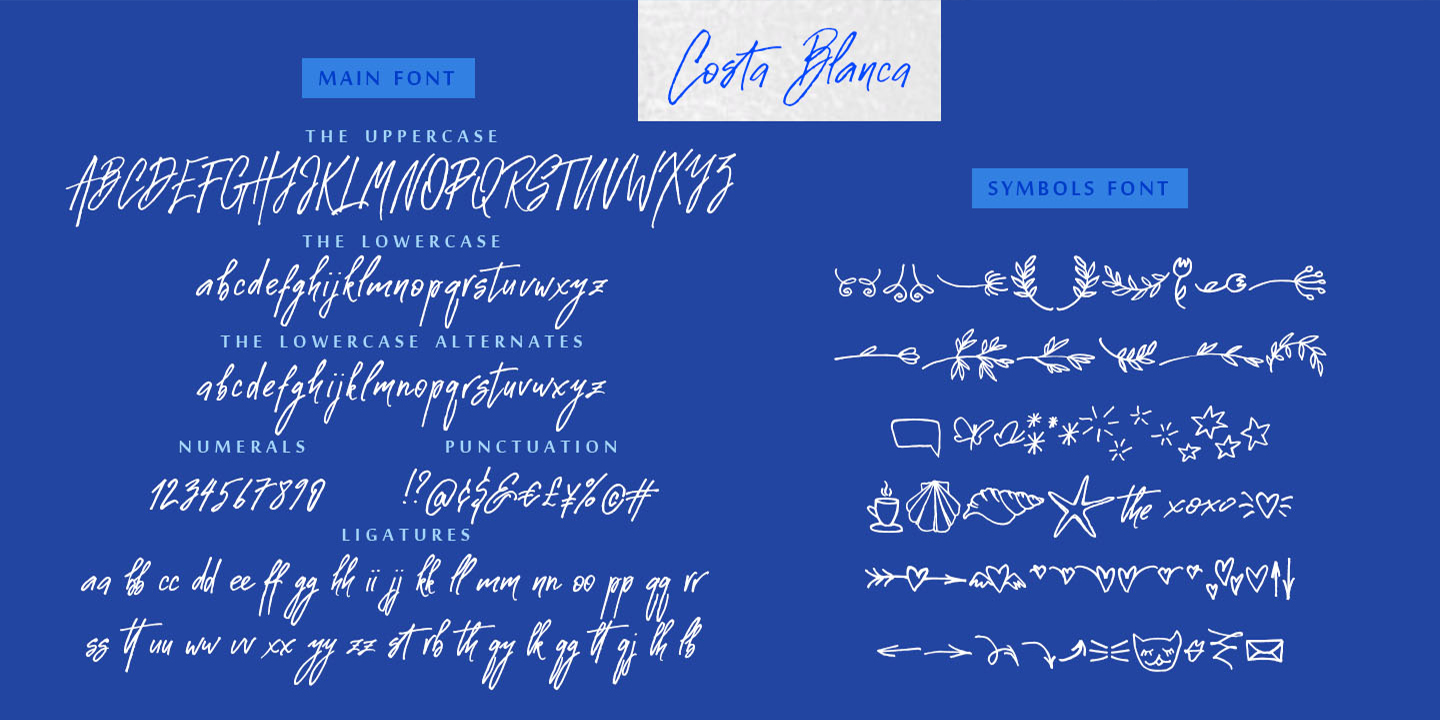 Costa Blanca
MAIN FONT
THE UPPERCASE
ABCDEFGHIJKLMNOPQRSTUVWXYZ
THE LOWERCASE
abcdefghijklmnopqrstuvwxyz
THE LOWERCASE ALTERNATES
abcdefghijklmnopqrstuvwxyz
NUMERALS
1234567890
PUNCTUATION
!?@¢$&€£¥%©#
LIGATURES
aa bb cc dd ee ff gg hh ii jj kk ll mm nn oo pp qq rr
ss tt uu ww vv xx yy zz st rb th gy lk gg tt gj lh lb
SYMBOLS FONT
the xoxo